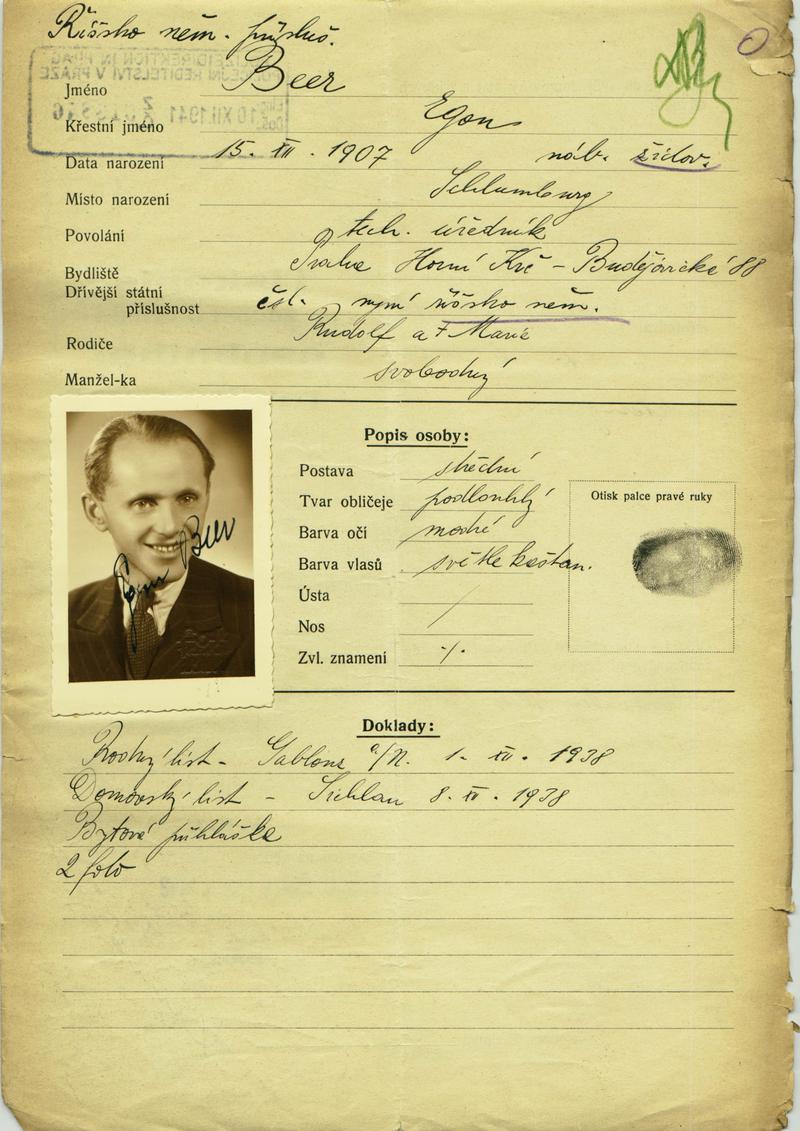 Říšsko něm. přísluš.
Jméno Beer
Křestní jméno Egon
POLIZEIDIREKTION IN PRAG
POLICEJNÍ ŘEDITELSTVÍ V PRAZE
10 XII. 1941
Data narození 15. XII. 1907 náb. židov.
Místo narození Schlumburg
Povolání tech. úředník
Bydliště Praha Horní Krč - Budějovická 88
Dřívější státní
příslušnost čsl. nyní říšsko něm.
Rodiče Rudolf a † Marie
Manžel-ka svobodný
Popis osoby:
Postava střední
Tvar obličeje podlouhlý
Barva očí modré
Barva vlasů světle kaštan.
Ústa /
Nos /
Zvl. znamení ·/·
Otisk palce pravé ruky
Egon Beer
Doklady:
Rodný list - Gablonz a/N. 1. XII. 1938
Domovský list - 8. XII. 1938
Bytová přihláška
2 foto